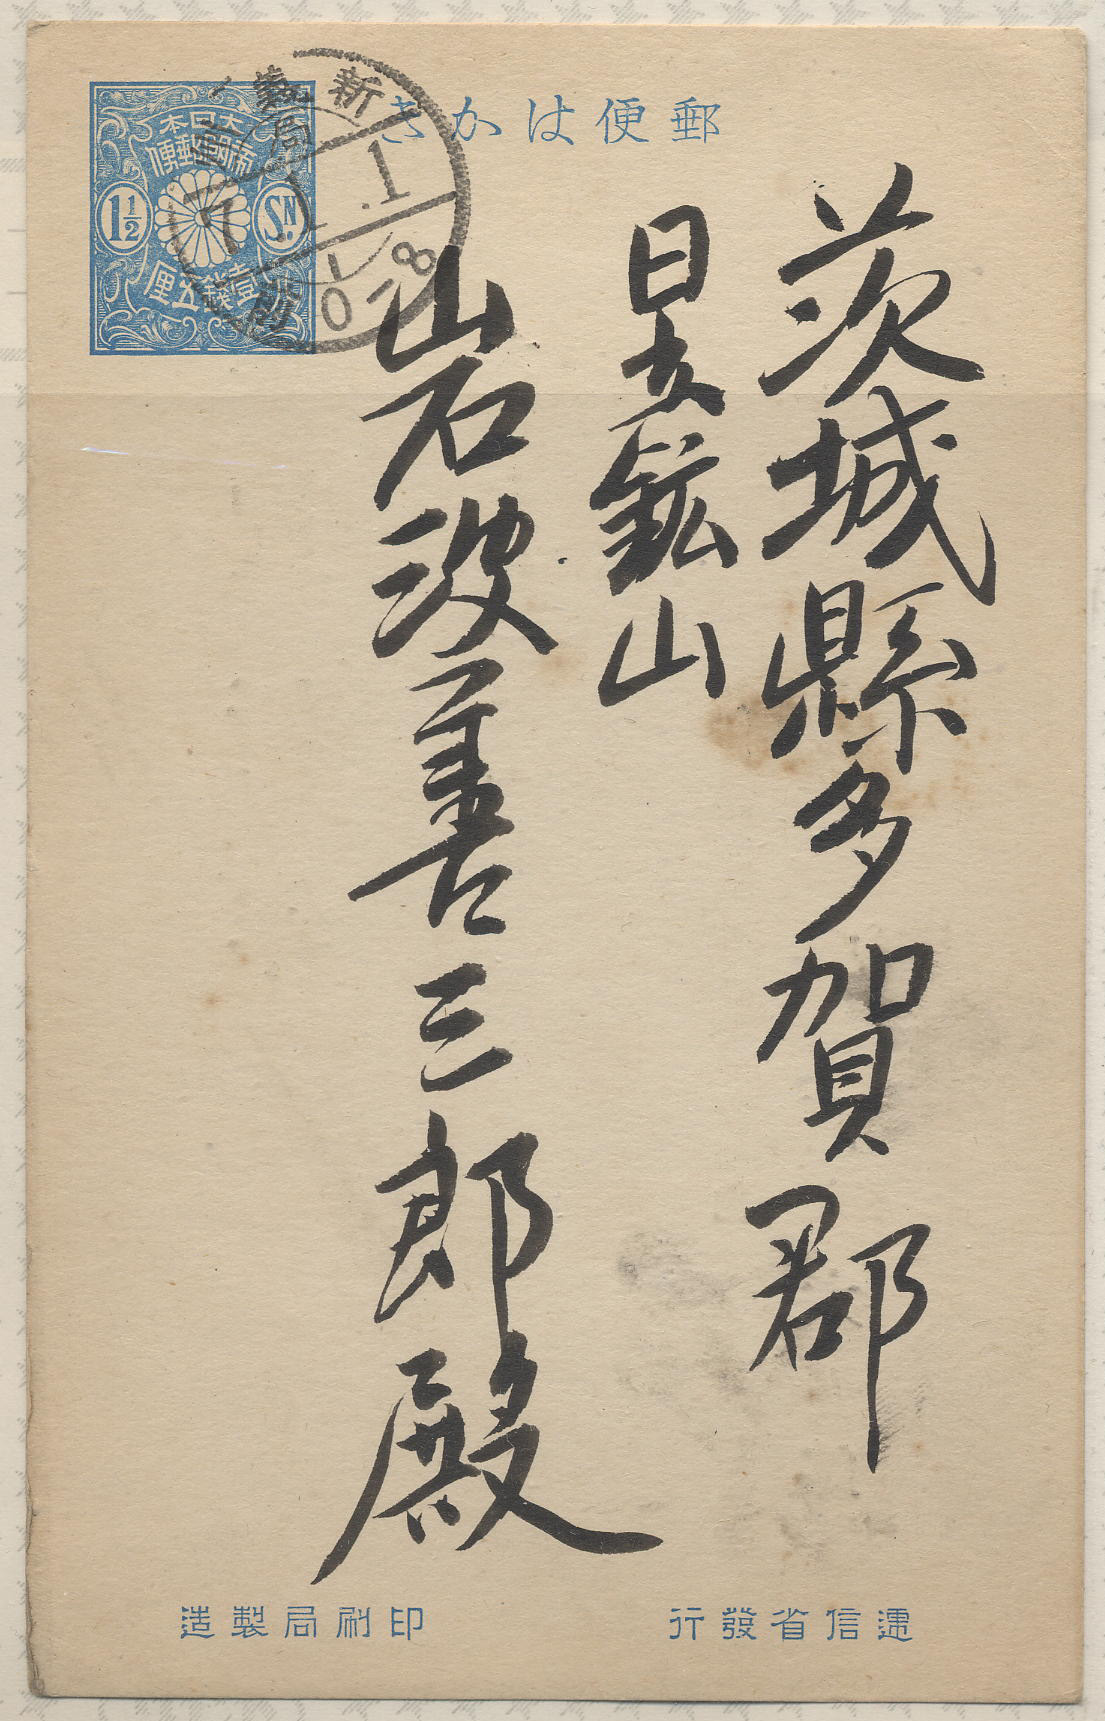 郵便はかき
大日本
帝國郵便
1½
SN.
壹錢五厘
新義
局
7 1 1
前
8-10
茨城縣多賀郡
日立鉱山
岩波善三郎殿
逓信省發行
印刷局製造